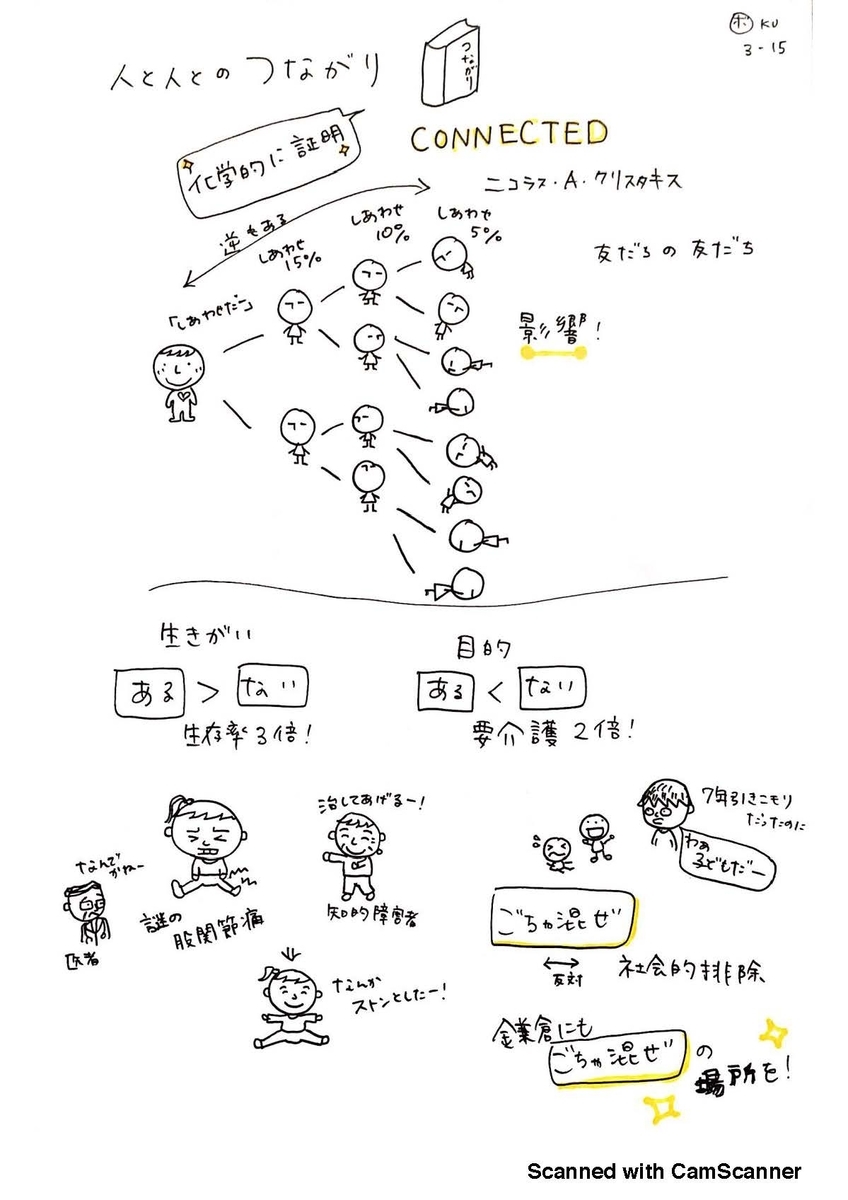 ボ KU
3-15
人と人とのつながり
つながり
CONNECTED
化学的に証明
ニコラス・A・クリスタキス
逆もある
しあわせ
15%
しあわせ
10%
しあわせ
5%
友だちの友だち
「しあわせだー」
影響！
生きがい
ある > ない
生存率3倍！
目的
ある < ない
要介護2倍！
なんで
かねー
医者
謎の
股関節痛
治してあげるー！
知的障害者
なんか
ストンとしたー！
7年引きコモリ
だったのに
わぁ
子どもだー
ごちゃ混ぜ
反対
社会的排除
鎌倉にも
ごちゃ混ぜの
場所を！
Scanned with CamScanner